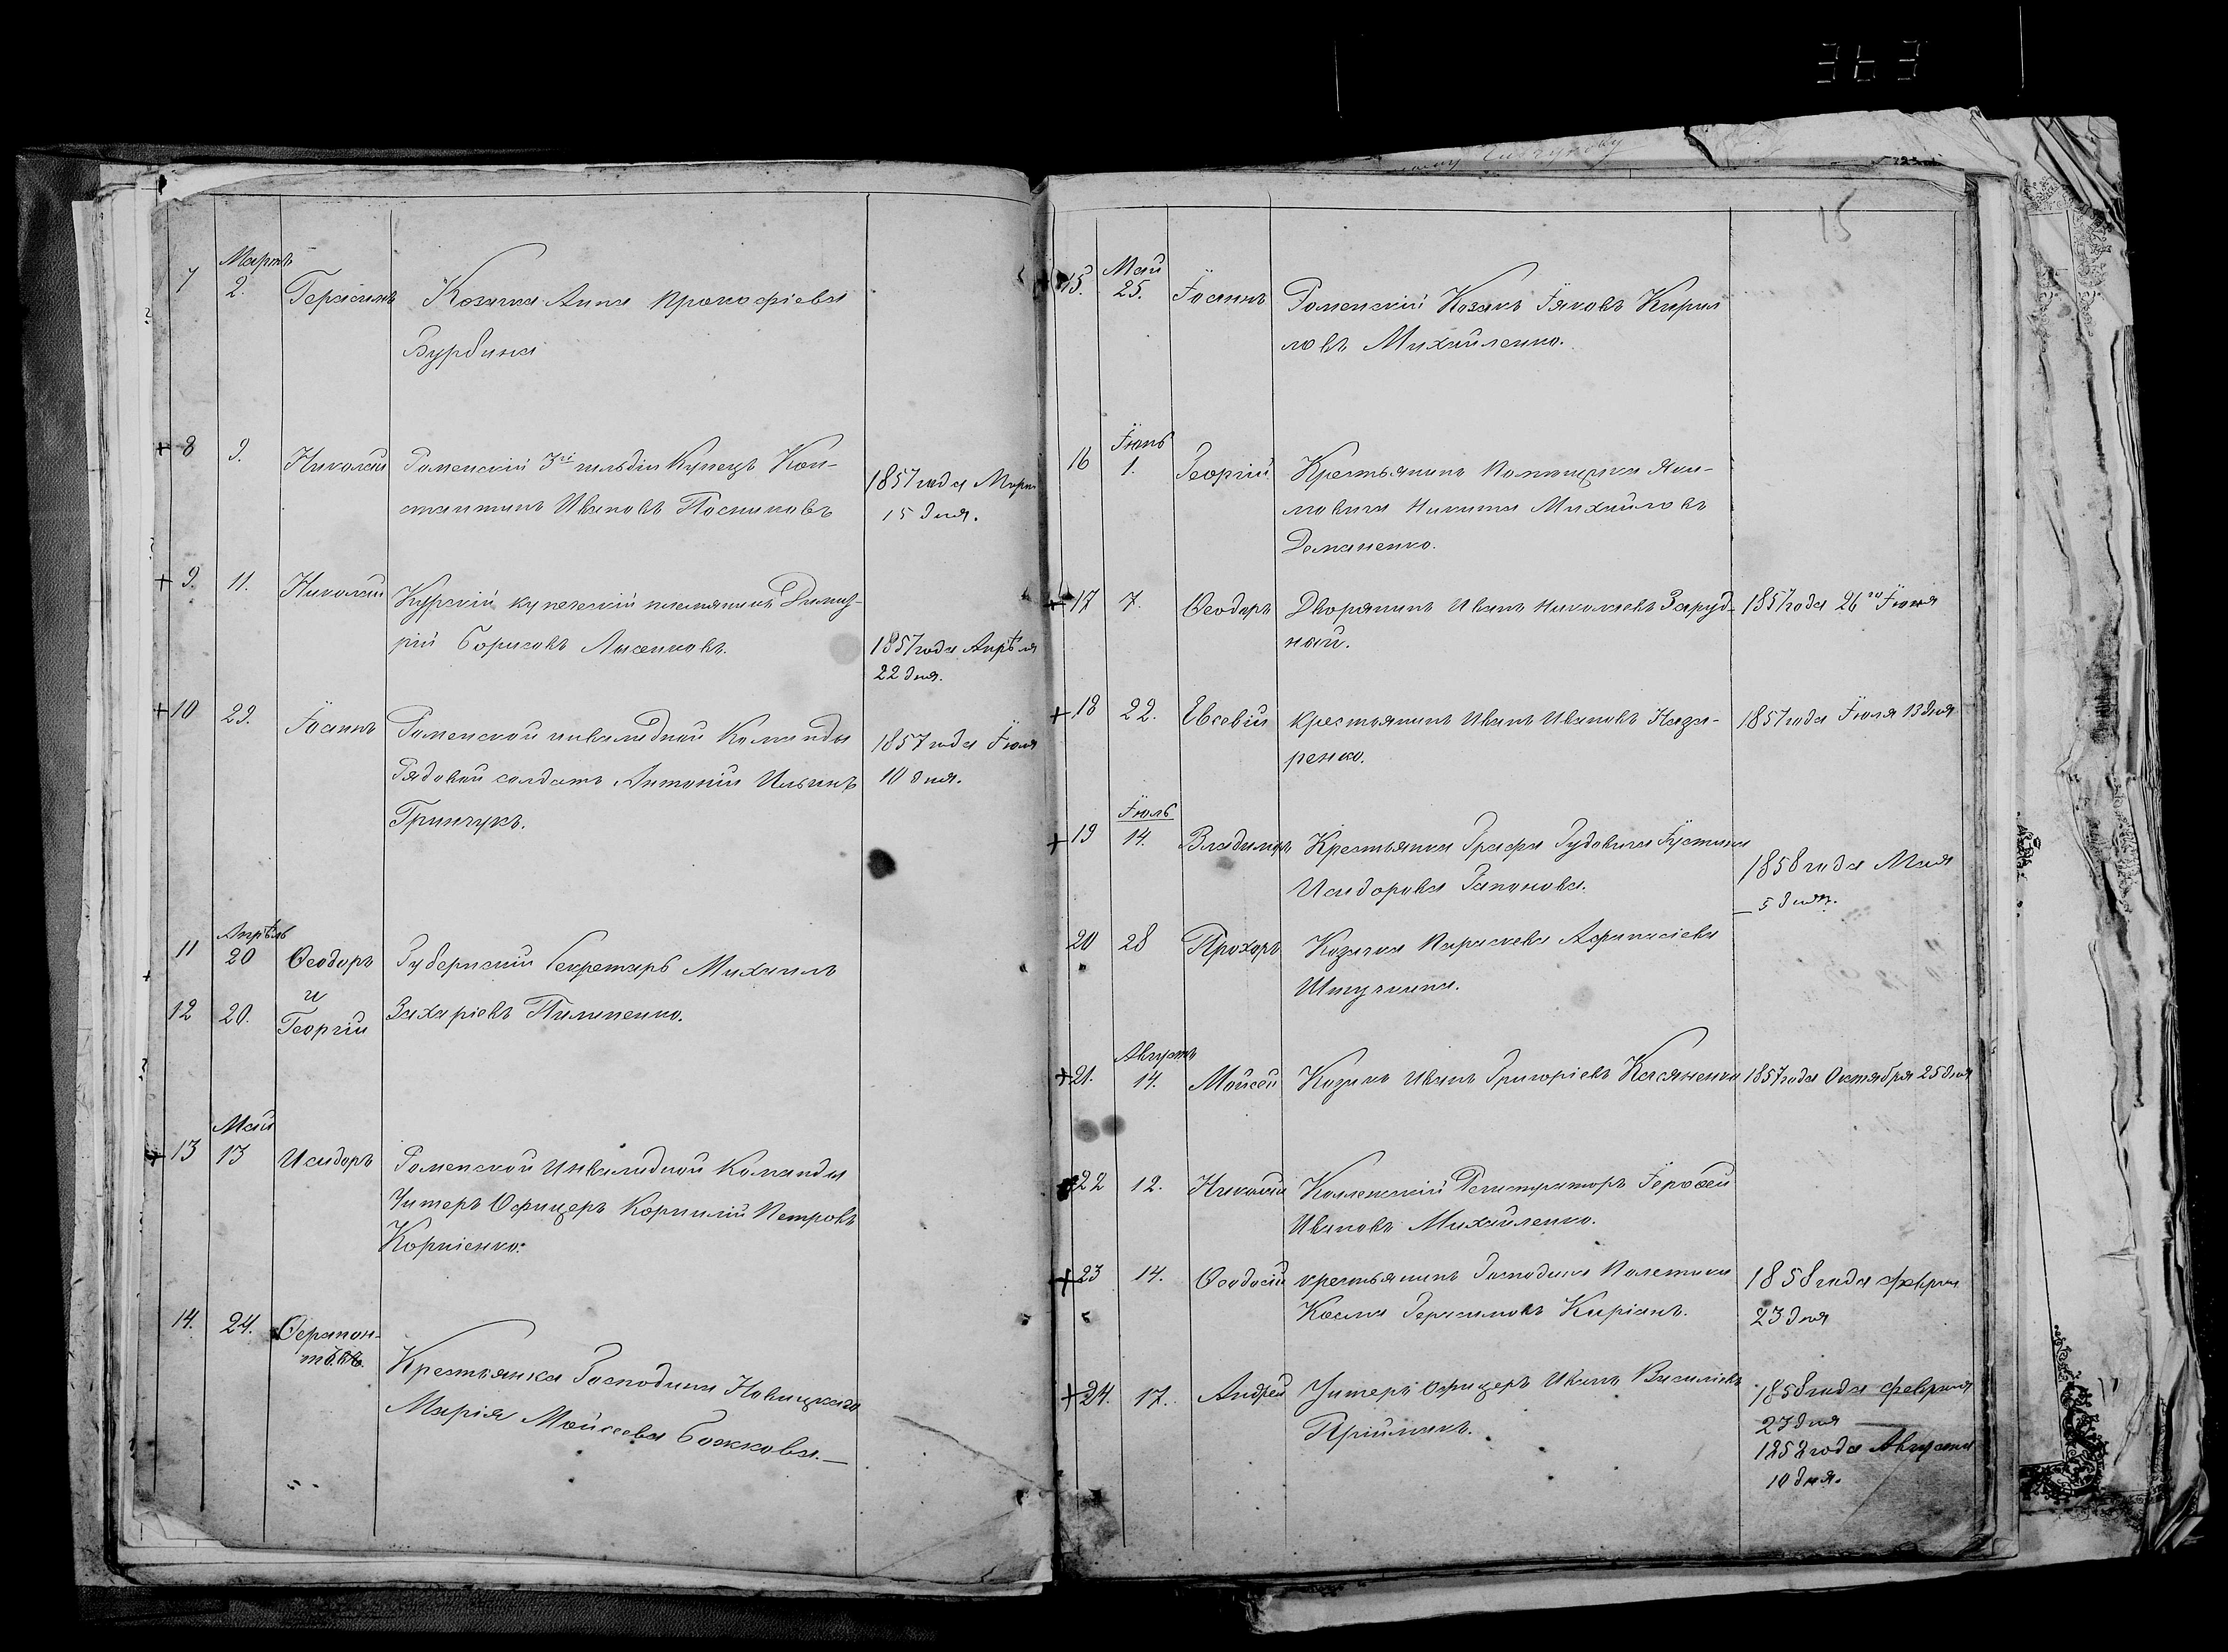 Мартъ
7 2. Герасимъ Козачка Анна Прокофіева
Бурбина
+ 8 9. Николай Роменскій 3й гильдіи Купецъ Кон-
стантинъ Ивановъ Посниковъ
1857 года Марта
15 дня.
+ 9. 11. Николай Курскій купеческій племянникъ Димит-
рій Борисовъ Лысенковъ.
1857 года Апрѣля
22 дня.
+ 10 29. Іоаннъ Роменской инвалидной Команды
Рядовой солдатъ Антоній Ильинъ
Гринчукъ.
1857 года Іюля
10 дня.
Апрѣль
11 20 Ѳеодоръ Губернскій Секретарь Михаилъ
и
12 20. Георгій Захаріевъ Пилипенко.
Май
+ 13 13 Исидоръ Роменской Инвалидной Команды
Унтеръ Офицеръ Корнилій Петровъ
Корніенко.
14. 24. Ѳерапон-
Крестьянка Господина Новицкаго
Марія Мойсеева Божкова.—
15
Май
15. 25. Іоаннъ Роменскій Козакъ Іяковъ Кирил
ловъ Михайленко.
Іюнь
16 1. Георгій Крестьянинъ Помѣщика
Никита Михайловъ
Романенко.
+ 17 7. Ѳеодоръ Дворянинъ Иванъ Николаевъ Заруд-
ный.
1857 года 26го Іюня
+ 18 22. Евсевій крестьянинъ Иванъ Ивановъ Наза-
ренко.
1857 года Іюля 13 дня
Іюль
+ 19 14. Владиміръ Крестьянка Графа Гудовича Іустина
Исидорова Гапонова.
1858 года Мая
5 дня.
20 28 Прохоръ Козачка Параскева Афанасіева
Августъ
+ 21. 14. Мойсей Козакъ Иванъ Григоріевъ Касяненко 1857 года Октября 25 дня
+ 22 12. Николай Коллежскій Регистраторъ Іерофей
Ивановъ Михайленко.
+ 23 14. Ѳеодосій крестьянинъ Господина Полетики
Косма Герасимовъ Киріанъ.
1858 года февраля
23 дня
+ 24. 17. Андрей Унтеръ Офицеръ Иванъ Василіевъ
Пріймакъ.
1858 года февраля
27 дня
1858 года Августа
10 дня.